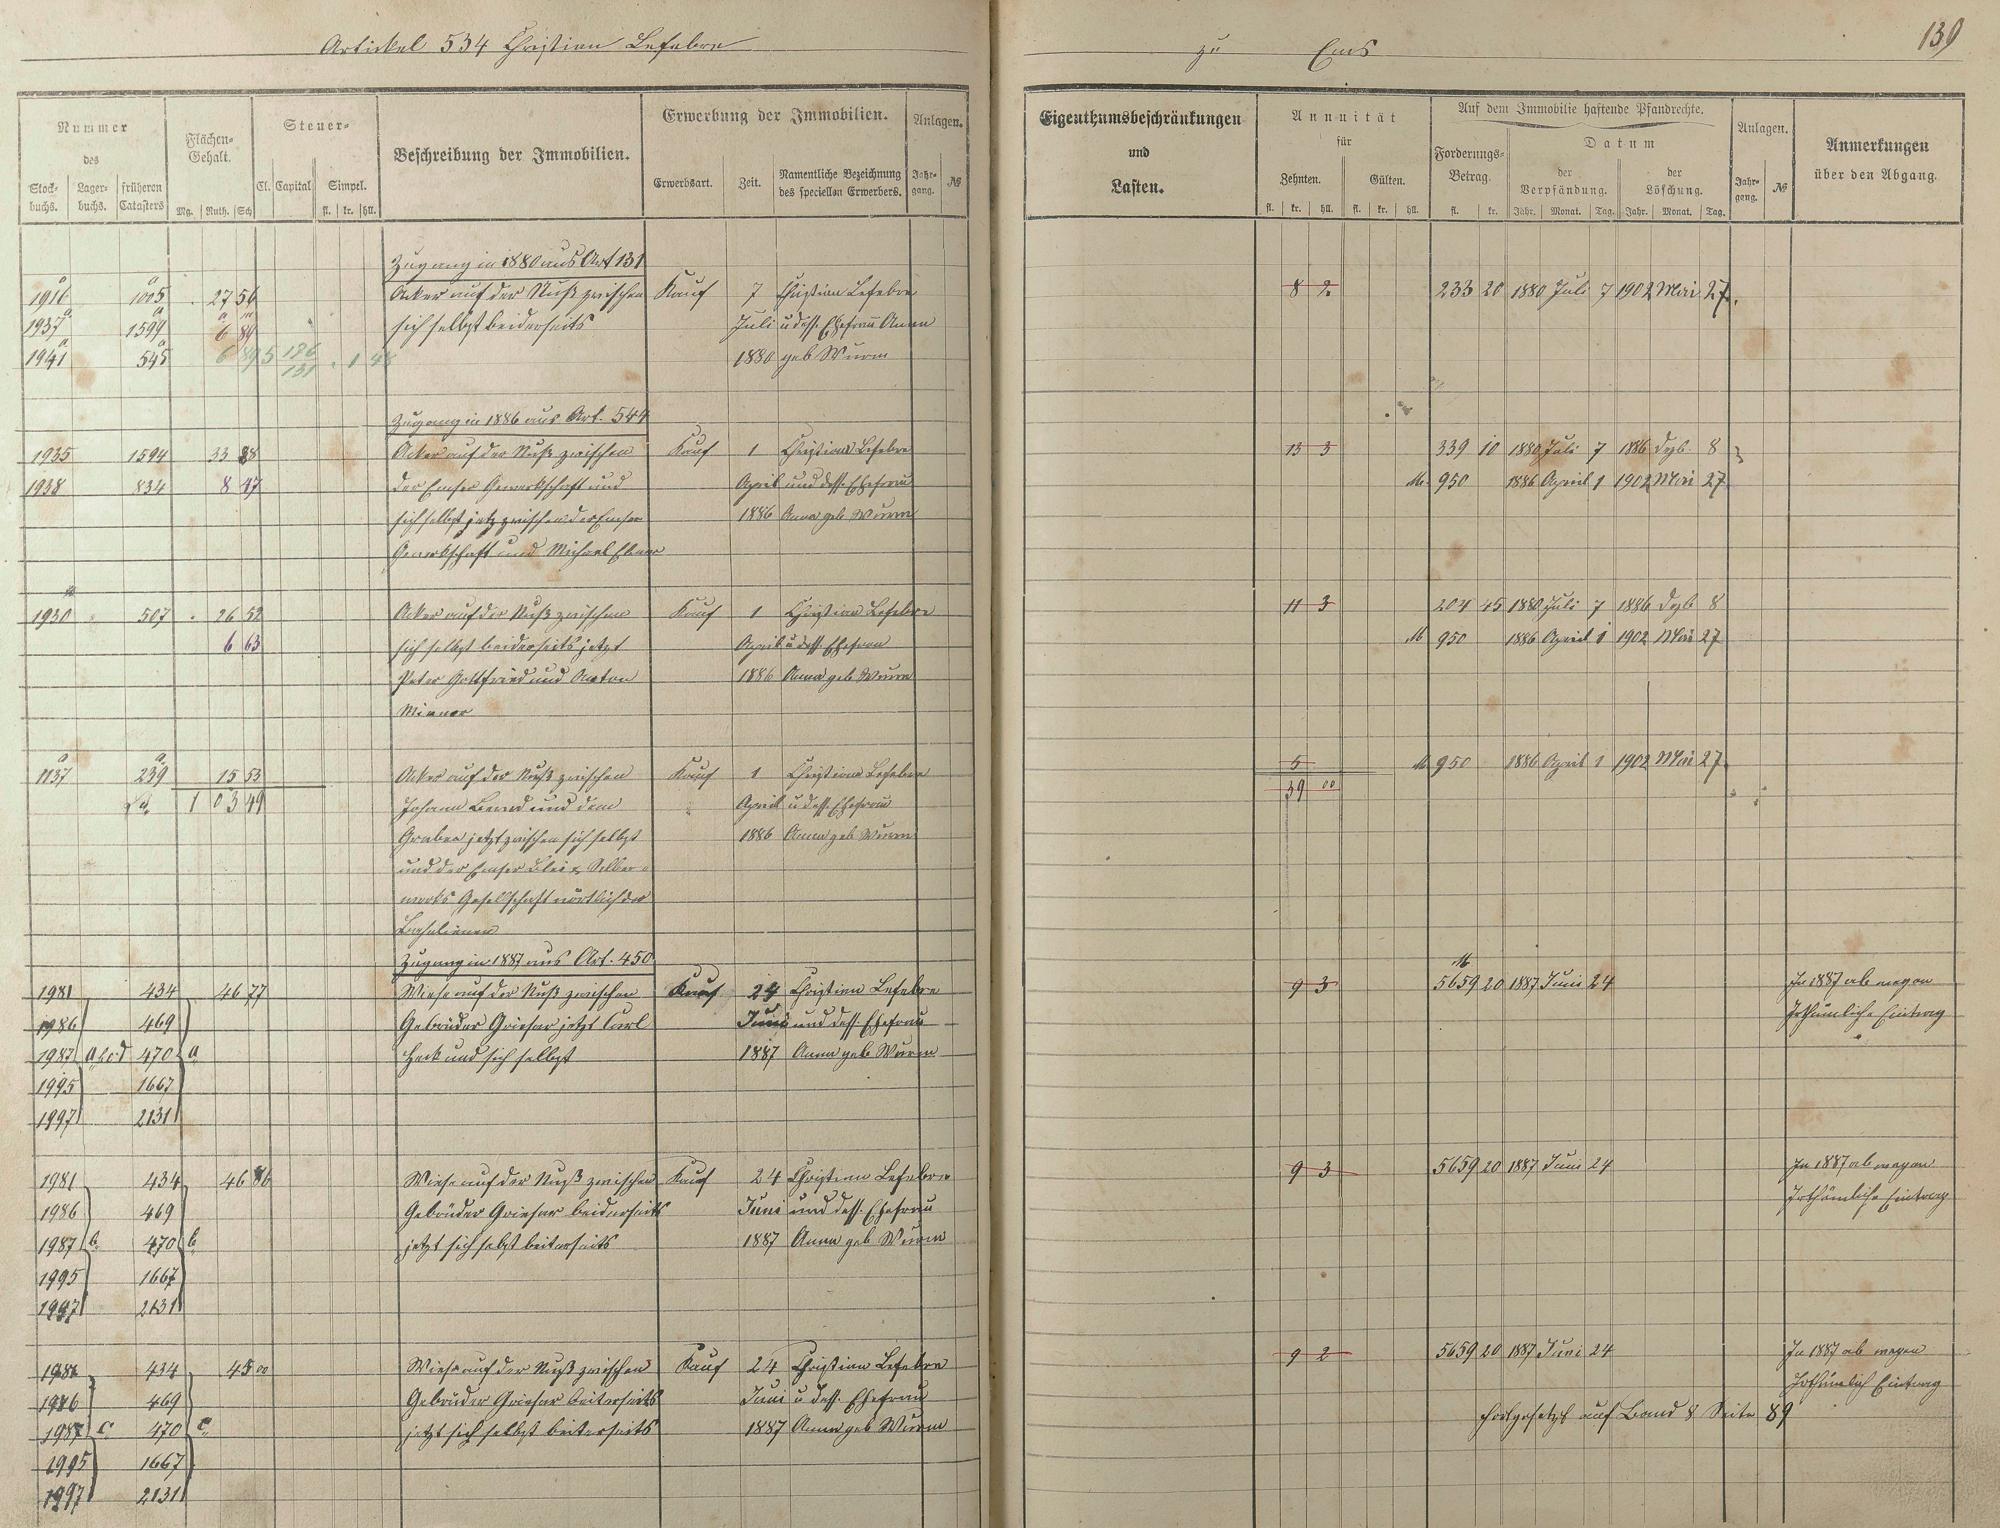 Artickel 534 Christian Lefebre
zu Ems
139
Nummer
des
Stock-
buchs.
Lager-
buchs.
früheren
Catasters
Flächen-
Gehalt.
Mg. Ruth. Sch
Steuer-
Cl. Capital Simpel.
fl. kr. hll.
Beschreibung der Immobilien.
Erwerbung der Immobilien.
Erwerbsart. Zeit. Namentliche Bezeichnung
des speciellen Erwerbers.
Anlagen.
Jahr-
gang. №
Eigenthumsbeschränkungen
und
Lasten.
Annuität
für
Zehnten. Gülten.
fl. kr. hll. fl. kr. hll.
Auf dem Immobilie haftende Pfandrechte.
Forderungs-
Betrag.
fl. kr.
Datum
der
Verpfändung.
Jahr. Monat. Tag.
der
Löschung.
Jahr. Monat. Tag.
Anlagen.
Jahr-
gang. №
Anmerkungen
über den Abgang.
Zugang in 1880 aus Art 131
1916 a 1005 a 27 56 Acker auf der Nuß zwischen Kauf 7 Christian Lefebre 8 2 233 20 1880 Juli 7 1902 Mai 27
1937 a 1599 a 6 89 sich selbst beiderseits Juli u dess. Ehefrau Anna
1941 a 545 a 6 89 5 186 1 48 1880 geb Wurm
131
Zugang in 1886 aus Art. 544
1935 1594 33 88 Acker auf der Nuß zwischen Kauf 1 Christian Lefebre 13 3 339 10 1880 Juli 7 1886 Dezb. 8
1938 834 8 47 der Emser Gewerkschaft und April und dess. Ehefrau M. 950 1886 April 1 1902 Mai 27
sich selbst jetzt zwischen der Emser 1886 Anna geb Wurm
Gewerkschaft und Michael Ebner
1930 507 26 52 Acker auf der Nuß zwischen Kauf 1 Christian Lefebre 11 3 204 45 1880 Juli 7 1886 Dezb 8
6 63 sich selbst beiderseits jetzt April u dess. Ehefrau M 950 1886 April 1 1902 Mai 27
Peter Gottfried und Anton 1886 Anna geb Wurm
Minner
1137 a 239 a 15 53 Acker auf der Nuß zwischen Kauf 1 Christian Lefebre 5 M 950 1886 April 1 1902 Mai 27
1 03 49 Johann Bernd und dem April u dess. Ehefrau 39 00
Graben jetzt zwischen sich selbst 1886 Anna geb Wurm
und der Emser Blei & Silber-
werks Gesellschaft nörtlich der
Zugang in 1887 aus Art. 450
1981 434 46 77 Wiese auf der Nuß zwischen Kauf 24 Christian Lefebre 9 3 M 5659 20 1887 Juni 24 In 1887 ab wegen
1986 469 Gebrüder Griesar jetzt Carl Juni und dess. Ehefrau Irthümliche Eintrag
1987 a b c d 470 a Heck und sich selbst 1887 Anna geb Wurm
1995 1667
1997 2131
1981 434 46 86 Wiese auf der Nuß zwischen Kauf 24 Christian Lefebre 9 3 5659 20 1887 Juni 24 In 1887 ab wegen
1986 469 Gebrüder Griesar beiderseits Juni und dess. Ehefrau Irthümliche Eintrag
1987 b 470 b jetzt sich selbst beiterseits 1887 Anna geb Wurm
1995 1667
1997 2131
1981 434 45 00 Wiese auf der Nuß zwischen Kauf 24 Christian Lefebre 9 2 5659 20 1887 Juni 24 In 1887 ab wegen
1986 469 Gebrüder Griesar beiterseits Juni u dess. Ehefrau Irthümlich Eintrag
1987 c 470 c jetzt sich selbst beiterseits 1887 Anna geb Wurm fortgesetzt auf Band 8 Seite 89
1995 1667
1997 2131